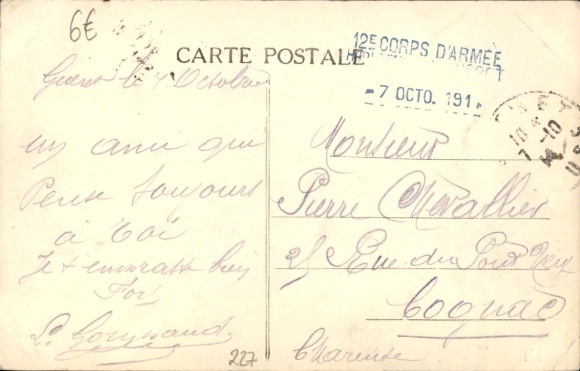 6€
CARTE POSTALE
12E CORPS D'ARMÉE
- 7 OCTO. 191
7 -10
Guéret le 7 Octobre
un ami qui
Pense toujours
à toi
Je t embrasse bien
Fort
Monsieur
Pierre Chevallier
25 Rue du Pont Neuf
Cognac
Charente
227